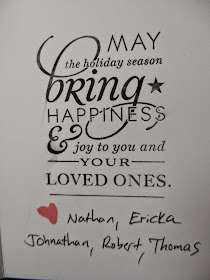 MAY
the holiday season
bring
HAPPINESS
& joy to you and
YOUR
LOVED ONES.
Nathan, Ericka
Johnathan, Robert, Thomas